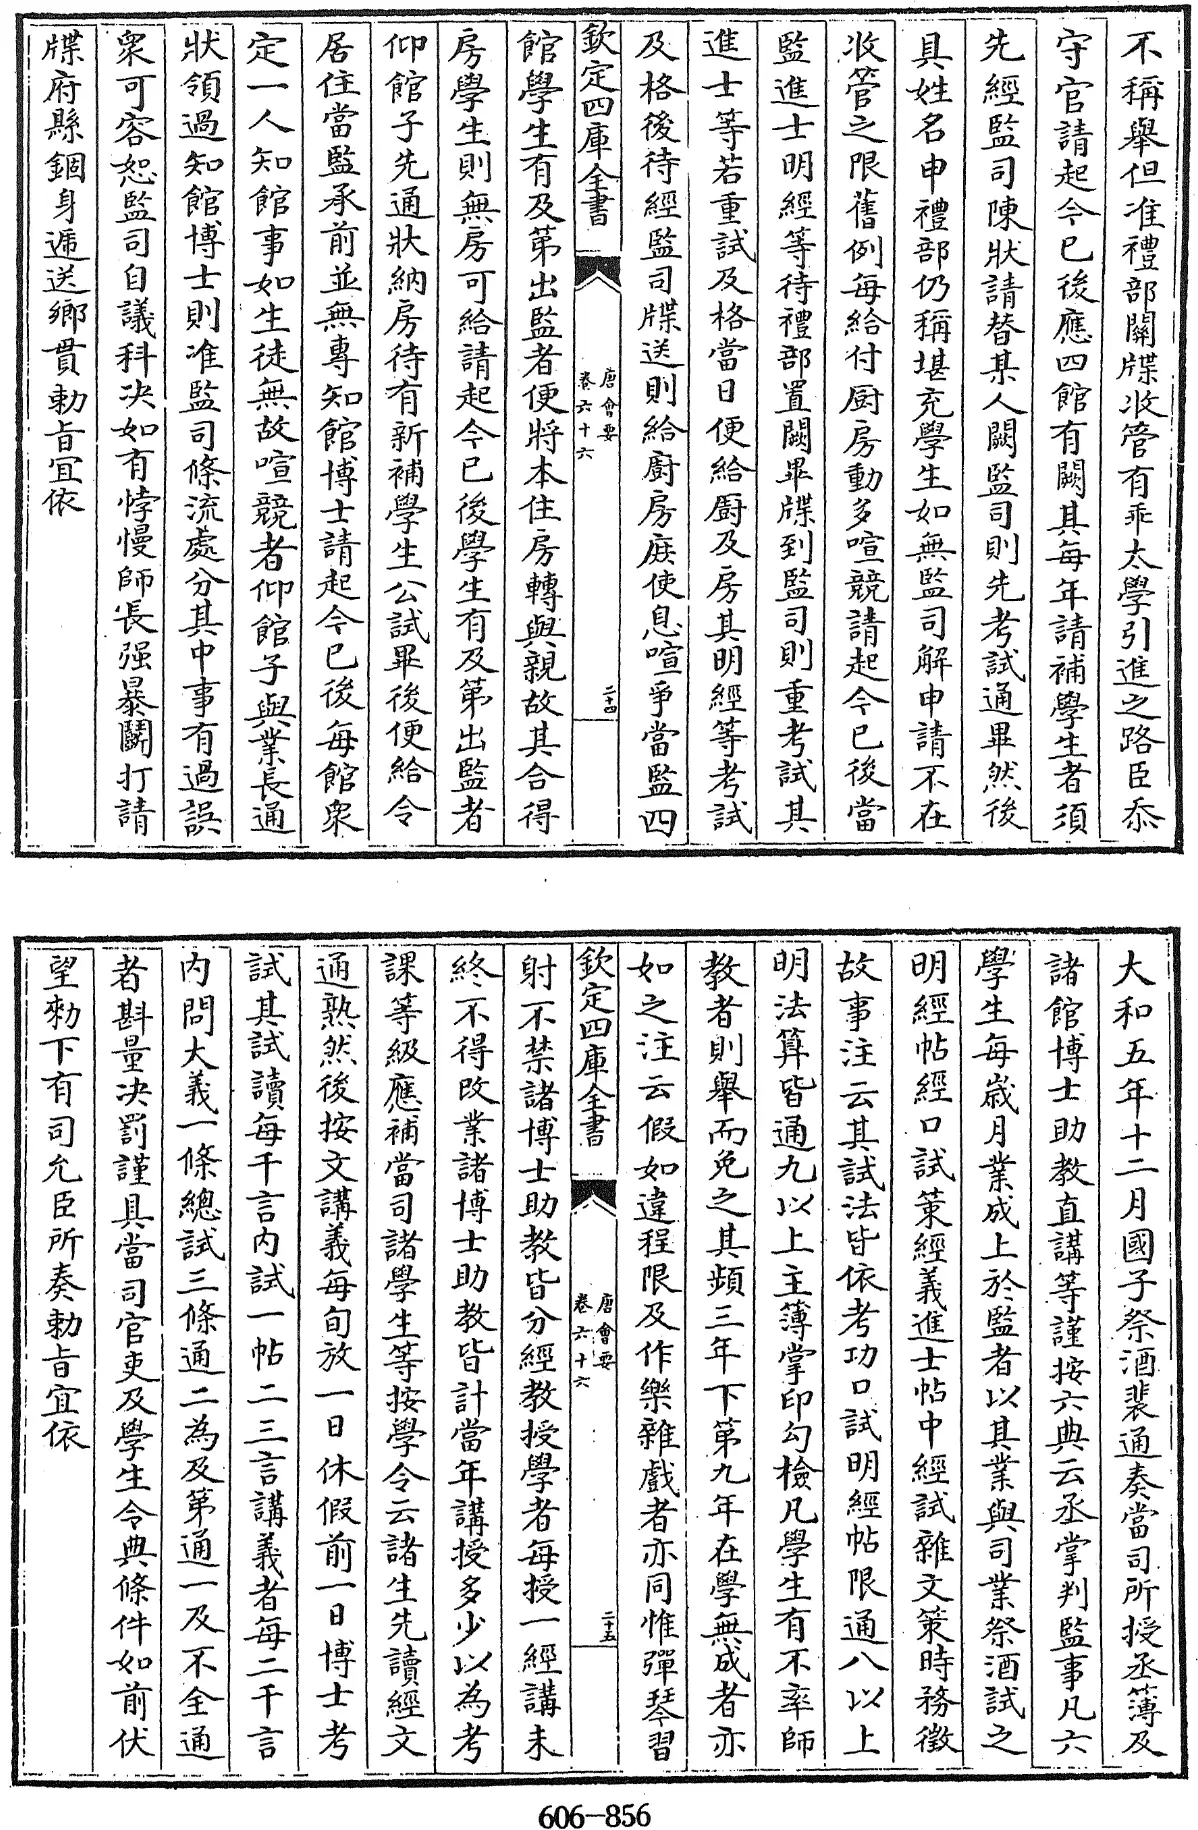 不稱舉但准禮部關牒收管有乖太學引進之路臣忝
守官請起今已後應四館有闕其每年請補學生者須
先經監司陳狀請替某人闕監司則先考試通畢然後
具姓名申禮部仍稱堪充學生如無監司解申請不在
收管之限舊例每給付厨房動多喧競請起今已後當
監進士明經等待禮部置闕畢牒到監司則重考試其
進士等若重試及格當日便給厨及房其明經等考試
及格後待經監司牒送則給廚房庶使息喧爭當監四
欽定四庫全書
唐會要
卷六十六
二十四
館學生有及第出監者便將本住房轉與親故其合得
房學生則無房可給請起今已後學生有及第出監者
仰館子先通狀納房待有新補學生公試畢後便給令
居住當監承前並無專知館博士請起今已後每館衆
定一人知館事如生徒無故喧競者仰館子與業長通
狀領過知館博士則准監司條流處分其中事有過誤
衆可容恕監司自議科决如有悖慢師長强暴鬬打請
牒府縣錮身遞送鄉貫勅旨宜依
大和五年十二月國子祭酒裴通奏當司所授丞簿及
諸館博士助教直講等謹按六典云丞掌判監事凡六
學生每歲月業成上於監者以其業與司業祭酒試之
明經帖經口試策經義進士帖中經試雜文策時務徵
故事注云其試法皆依考功口試明經帖限通八以上
明法算皆通九以上主簿掌印勾檢凡學生有不率師
教者則舉而免之其頻三年下第九年在學無成者亦
如之注云假如違程限及作樂雜戲者亦同惟彈琴習
欽定四庫全書
唐會要
卷六十六
二十五
射不禁諸博士助教皆分經教授學者每授一經講未
終不得改業諸博士助教皆計當年講授多少以為考
課等級應補當司諸學生等按學令云諸生先讀經文
通熟然後按文講義每旬放一日休假前一日博士考
試其試讀每千言内試一帖二三言講義者每二千言
内問大義一條總試三條通二為及第通一及不全通
者斟量决罰謹具當司官吏及學生令典條件如前伏
望勑下有司允臣所奏勅旨宜依
606—856